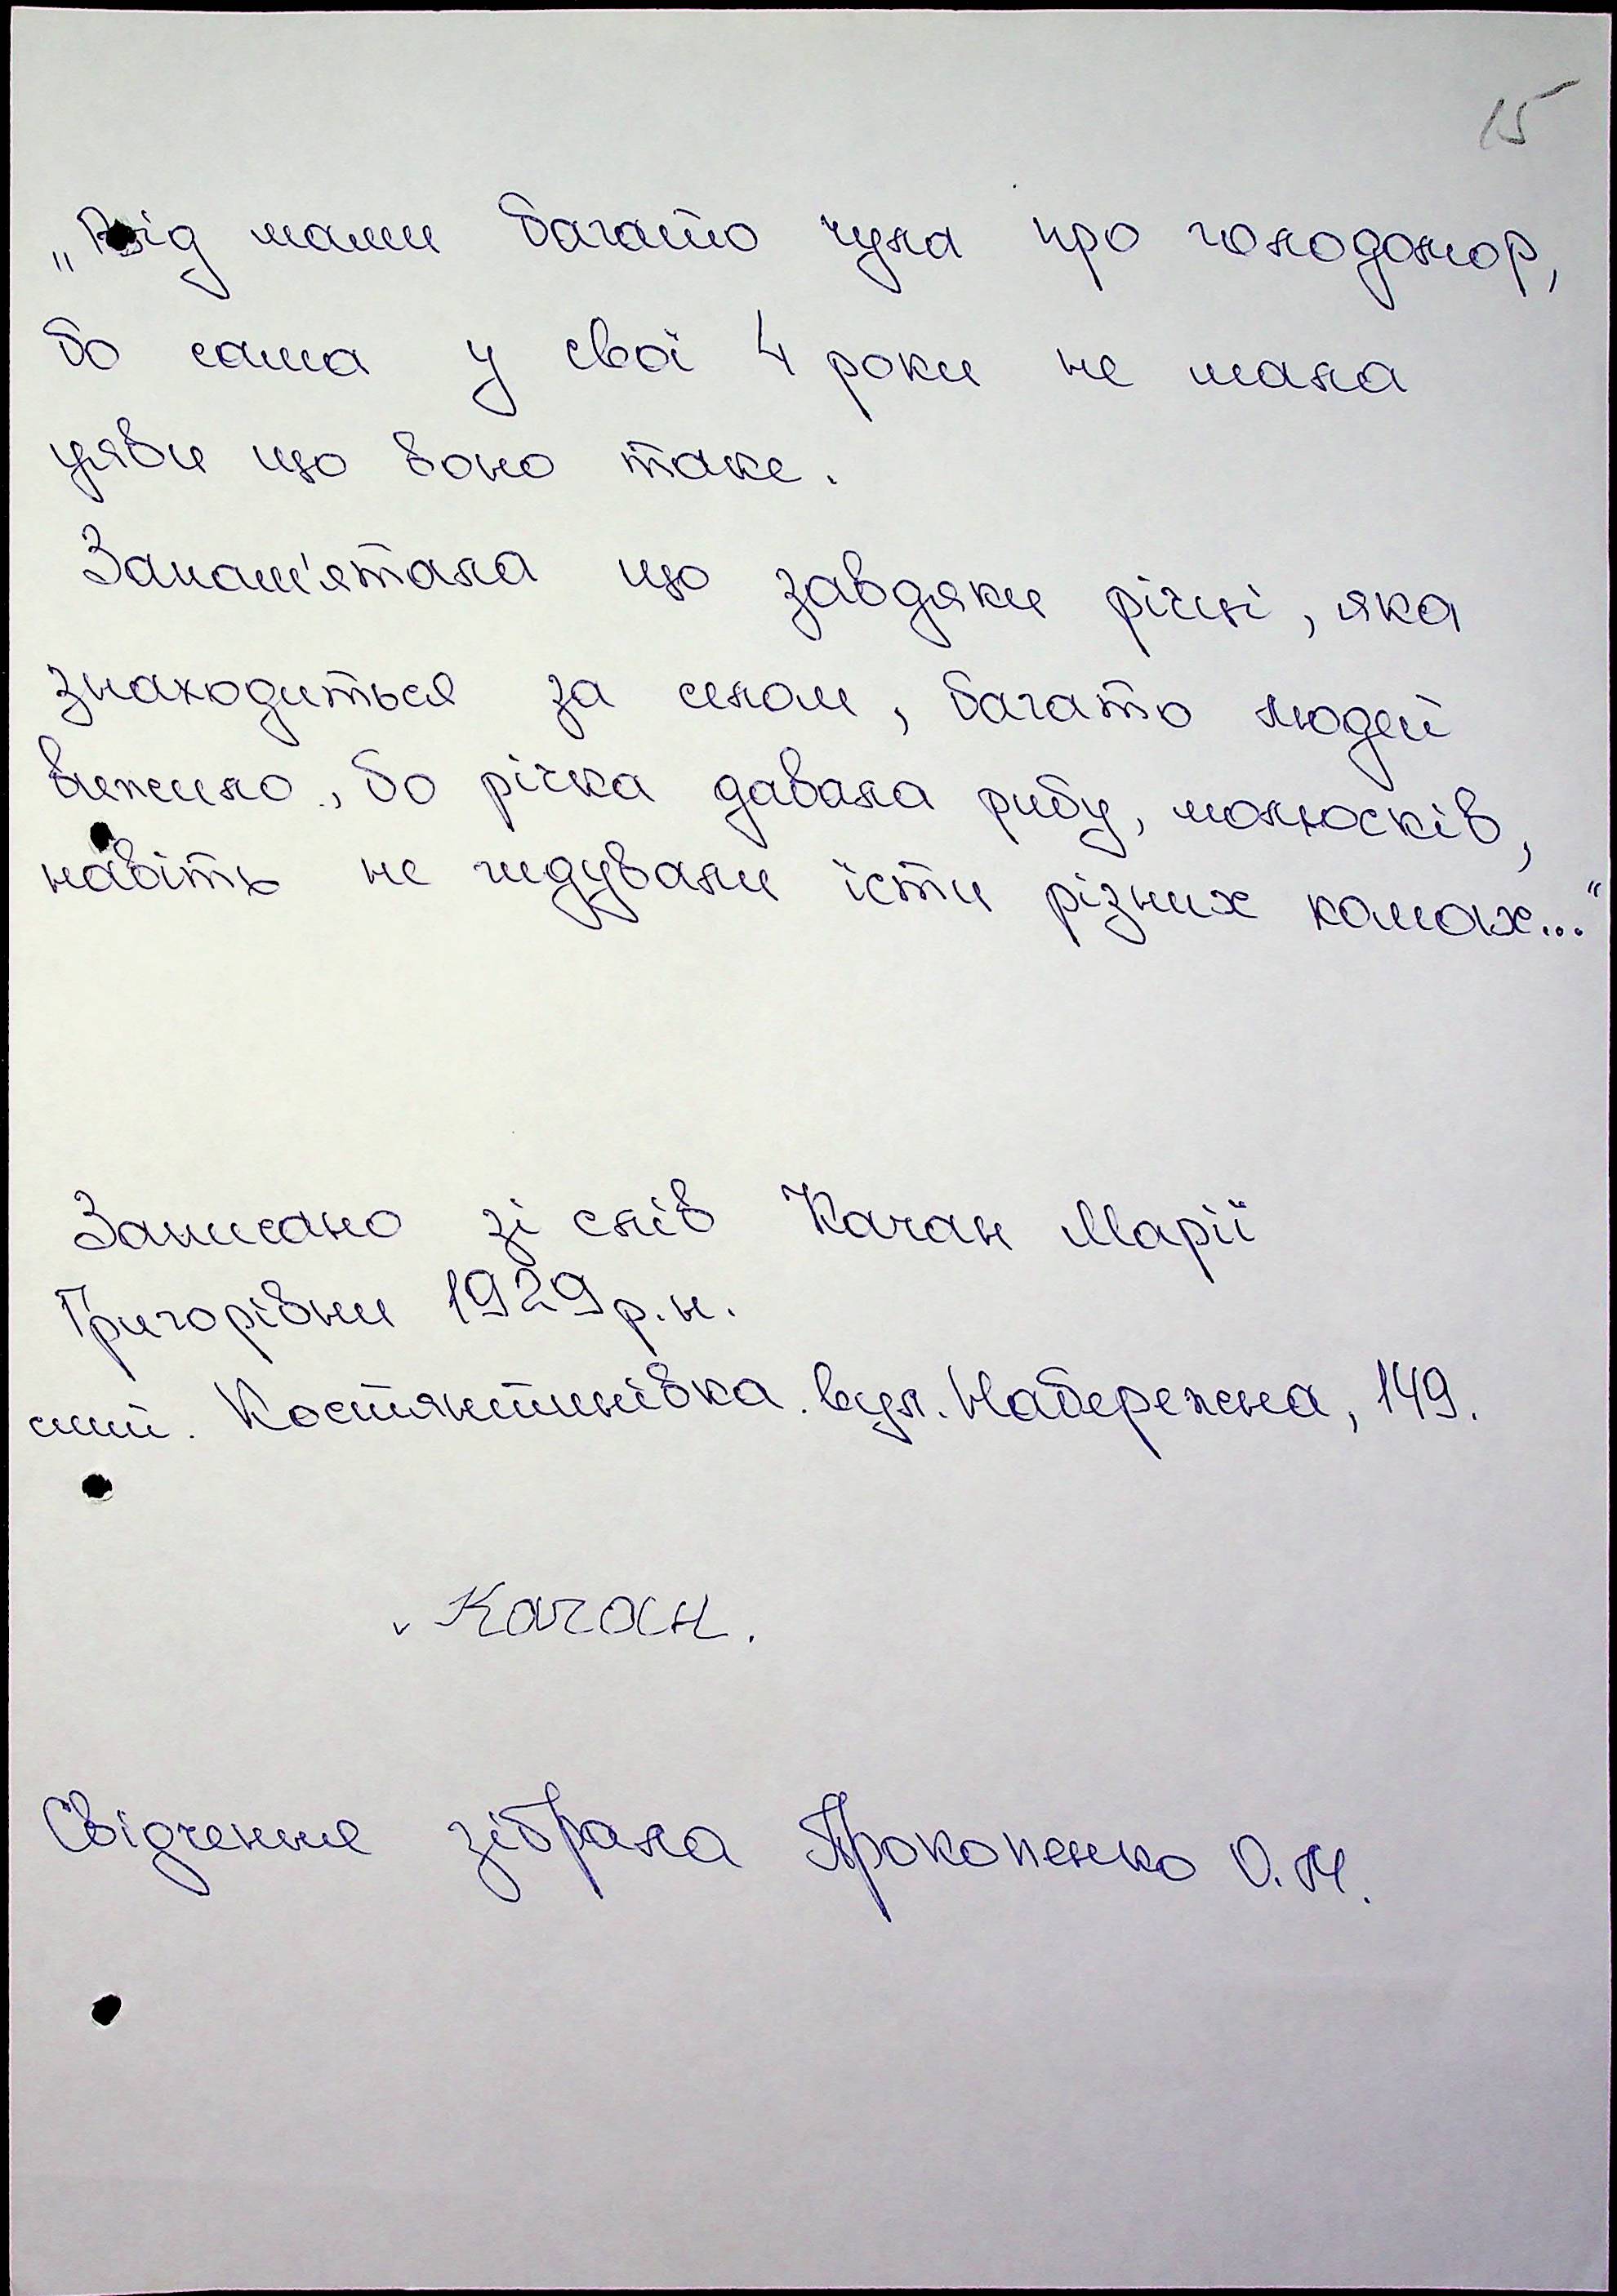 15
„Від мами багато чула про голодомор,
бо сама у свої 4 роки не мала
уяви що воно таке.
Запам'ятала що завдяки річці, яка
знаходиться за селом, багато людей
вижило, бо річка давала рибу, молюсків,
навіть не гидували їсти різних комах..."
Записано зі слів Качан Марії
Григорівни 1929 р.н.
смт. Костянтинівка. вул. Набережна, 149.
Качан.
Свідчення зібрала Прокопенко О.М.